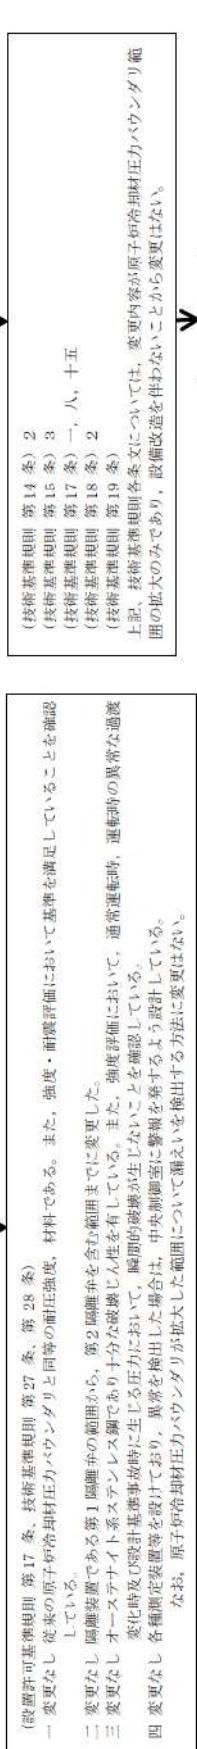 (設置許可基準規則 第17 条、技術基準規則 第27 条、第 28 条)
一 変更なし 従来の原子炉冷却材圧力バウンダリと同等の耐圧強度, 材料である。また, 強度・耐震評価において基準を満足していることを確認
している。
二 変更なし 隔離装置である第1隔離弁の範囲から, 第2隔離弁を含む範囲までに変更した。
三 変更なし オーステナイト系ステンレス鋼であり十分な破壊じん性を有している。また, 強度評価において, 通常運転時, 運転時の異常な過渡
変化時及び設計基準事故時に生じる圧力において, 瞬間的破壊が生じないことを確認している。
四 変更なし 各種測定装置等を設けており, 異常を検出した場合は, 中央制御室に警報を発するよう設計している。
なお, 原子炉冷却材圧力バウンダリが拡大した範囲について漏えいを検出する方法に変更はない。
(技術基準規則 第14 条) 2
(技術基準規則 第15 条) 3
(技術基準規則 第17 条) 一, 八, 十五
(技術基準規則 第18 条) 2
(技術基準規則 第19 条)
上記, 技術基準規則各条文については, 変更内容が原子炉冷却材圧力バウンダリ範
囲の拡大のみであり, 設備改造を伴わないことから変更はない。